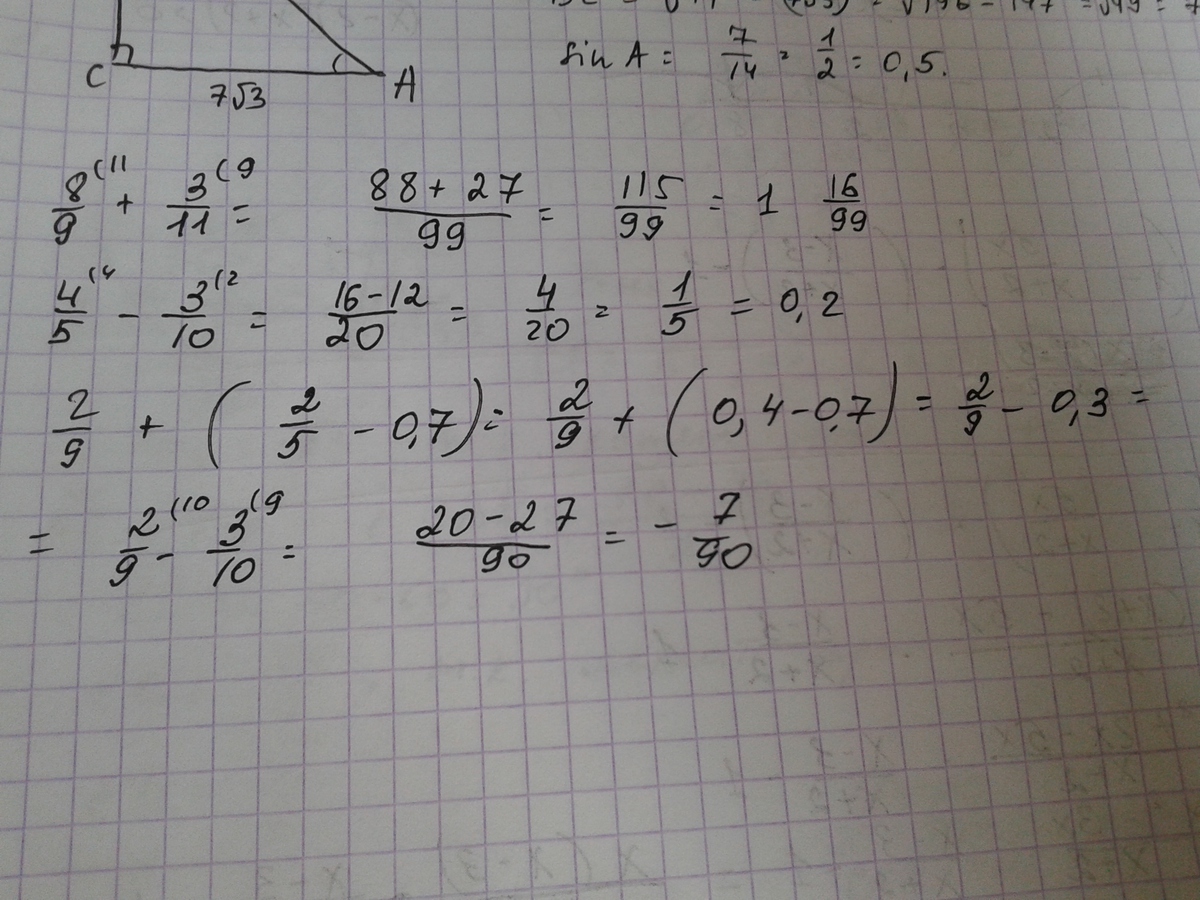 = √196 - 147 = √49 = 7
sin A = 7/14 = 1/2 = 0,5.
C
A
7√3
8/9 (11 + 3/11 (9 = (88 + 27)/99 = 115/99 = 1 16/99
4/5 (4 - 3/10 (2 = (16 - 12)/20 = 4/20 = 1/5 = 0,2
2/9 + (2/5 - 0,7) = 2/9 + (0,4 - 0,7) = 2/9 - 0,3 =
= 2/9 (10 - 3/10 (9 = (20 - 27)/90 = - 7/90